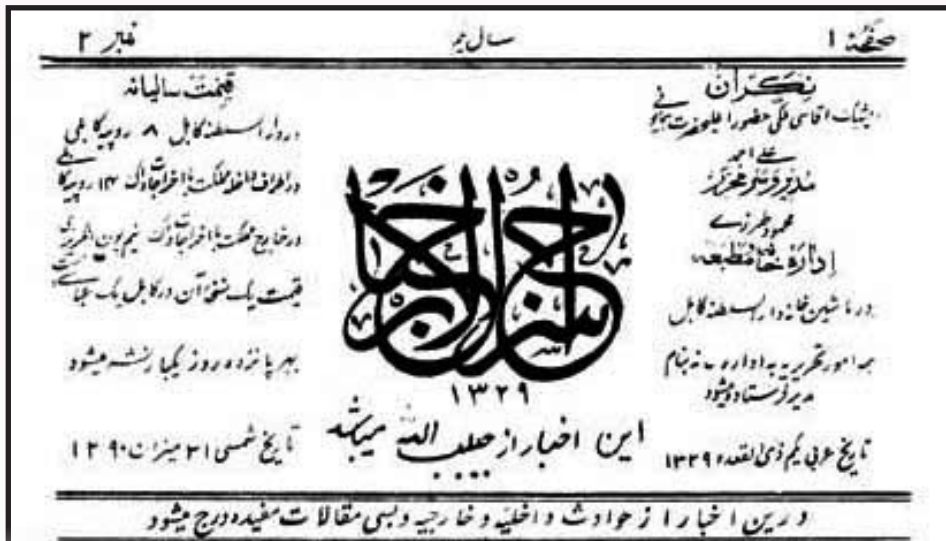 صفحهٔ ۱
سال یکم
نمبر ۲
نگران
ایشیک اقاسی ملکی حضور اعلیحضرت همایونی
علی احمد
مدیر و سر محرر
محمود طرزی
ادارهٔ خانه مطبعه
در ماشین خانه دارالسلطنه کابل
همه امور تحریریه به اداره بنام
مدیر فرستاده میشود
تاریخ عربی یکم ذی القعده ۱۳۲۹
سراج الاخبار
۱۳۲۹
این اخبار از حبیب الله میباشد
قیمت سالیانه
در دارالسلطنه کابل ۸ روپیه کابلی
در اطراف داخله مملکت با اخراجات داک ۱۴ روپیه کابلی
در خارج مملکت با اخراجات داک نیم پون انگریزی
قیمت یک نسخهٔ آن در کابل یک عباسی
بهر پانزده روز یکبار نشر میشود
تاریخ شمسی ۳۱ میزان ۱۲۹۰
درین اخبار از حوادث داخلیه و خارجیه و بسی مقالات مفیده درج میشود